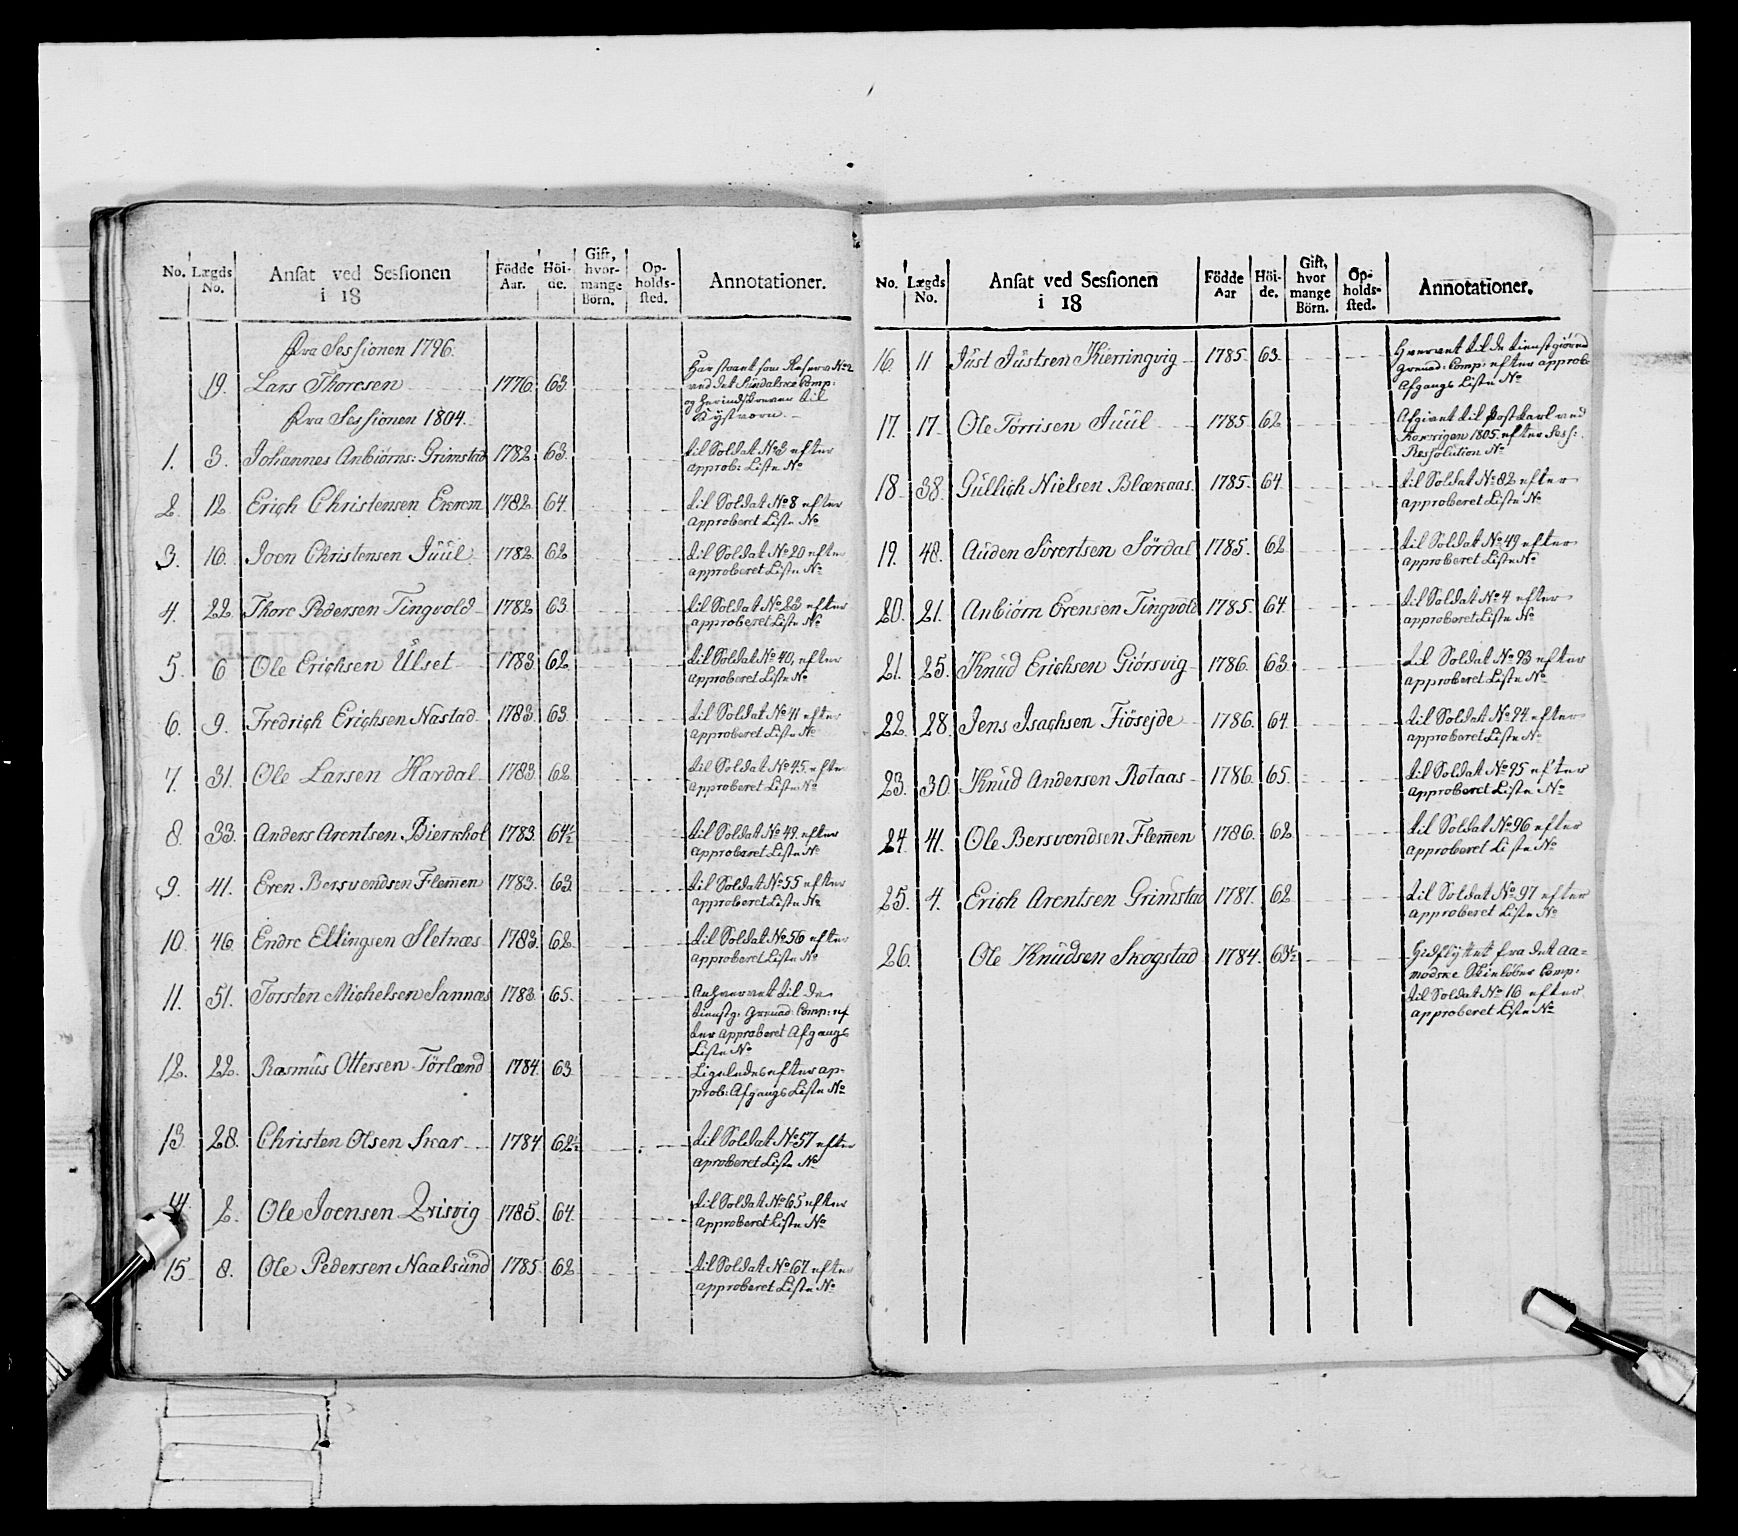 No. Lægds No. Ansat ved Sessionen i 18 Födde Aar. Höide. Gift, hvormange Börn. Opholdssted. Annotationer.
Fra Sessionen 1796.
19. Lars Thoresen 1776 63 Har staaet som Reserv No 2
ved det Sundalske Comp:
og herindskreven til
Kystværn.
Fra Sessionen 1804.
1. 3. Johannes Anbiörns: Grimstad 1782 63. til Soldat No 3 efter
approb: Liste No
2. 12 Erich Christensen 1782 64. til Soldat No 8 efter
approberet Liste No
3. 16. Joen Christensen Juul 1782 62 til Soldat No 20 efter
approberet Liste No
4. 22. Thore Pedersen Tingvold 1782 63. til Soldat No 23 efter
approberet Liste No
5. 6 Ole Erichsen Ulset 1783 62. til Soldat No 40, efter
approberet Liste No
6. 9. Fredrich Erichsen Nastad 1783. 63. til Soldat No 41 efter
approberet Liste No
7. 31. Ole Larsen Hardal 1783. 62. til Soldat No 45. efter
approberet Liste No
8. 33. Anders Arentsen Bierkhol 1783. 64½ til Soldat No 49. efter
approberet Liste No
9. 41. Even Bersvendsen Flemen 1783. 63. til Soldat No 55 efter
approberet Liste No
10. 46. Endre Ellingsen Sletnæs 1783. 62. til Soldat No 56 efter
approberet Liste No
11. 51. Torsten Michelsen Sannas 1783. 65. Anhvervet til de
tienstg: Grenad: Comp: ef
ter approberet Afgangs
Liste No
12. 22. Rasmus Ottersen Törlænd 1784. 63. Ligeledes efter ap-
prob: Afgangs Liste No
13 28. Christen Olsen Skar 1784 62½ til Soldat No 57 efter
aproberet Liste No
14 2. Ole Joensen 1785. 64. til Soldat No 65 efter
approberet Liste No
15 8. Ole Pedersen Naalsund 1785 62 til Soldat No 67 efter
approberet Liste No
No. Lægds No. Ansat ved Sessionen i 18 Födde Aar Höide. Gift, hvor mange Börn. Opholdssted. Annotationer.
16. 11 Just Justsen Kierringvig 1785. 63. Hvervet til de tienstgiörend
Grenad: Comp: efter approb:
Afgangs Liste No
17. 17 Ole Torrisen Juul 1785. 62 Afgivet til Postkarl ved
1805. efter Sess:
Ressolution No
18 38. Gullich Nielsen Blækaas 1785. 64. til Soldat No 82 efter
approberet Liste No
19. 48. Auden Sivertsen Sördal 1785. 62 til Soldat No 49 efter
approberet Liste No
20. 21. Anbiörn Evensen Tingvold 1785. 64. til Soldat No 4 efter
approberet Liste No
21. 25. Knud Erichsen Giörsvig 1786. 63 til Soldat No 93 efter
approberet Liste No
22. 28. Jens Isachsen Fiöseide 1786. 64. til Soldat No 94. efter
approberet Liste No
23. 30. Knud Andersen Rotaas 1786. 65. til Soldat No 95 efter
approberet Liste No
24. 41. Ole Bersvendsen Flemen 1786. 62. til Soldat No 96 efter
approberet Liste No
25. 4. Erich Arentsen Grimstad 1787. 62 til Soldat No 97 efter
approberet Liste No
26. Ole Knudsen Skogstad 1784. 63½ Hidflyttet fra det Aa-
modske Skielöber Comp:
til Soldat No 16 efter
approberet Liste No